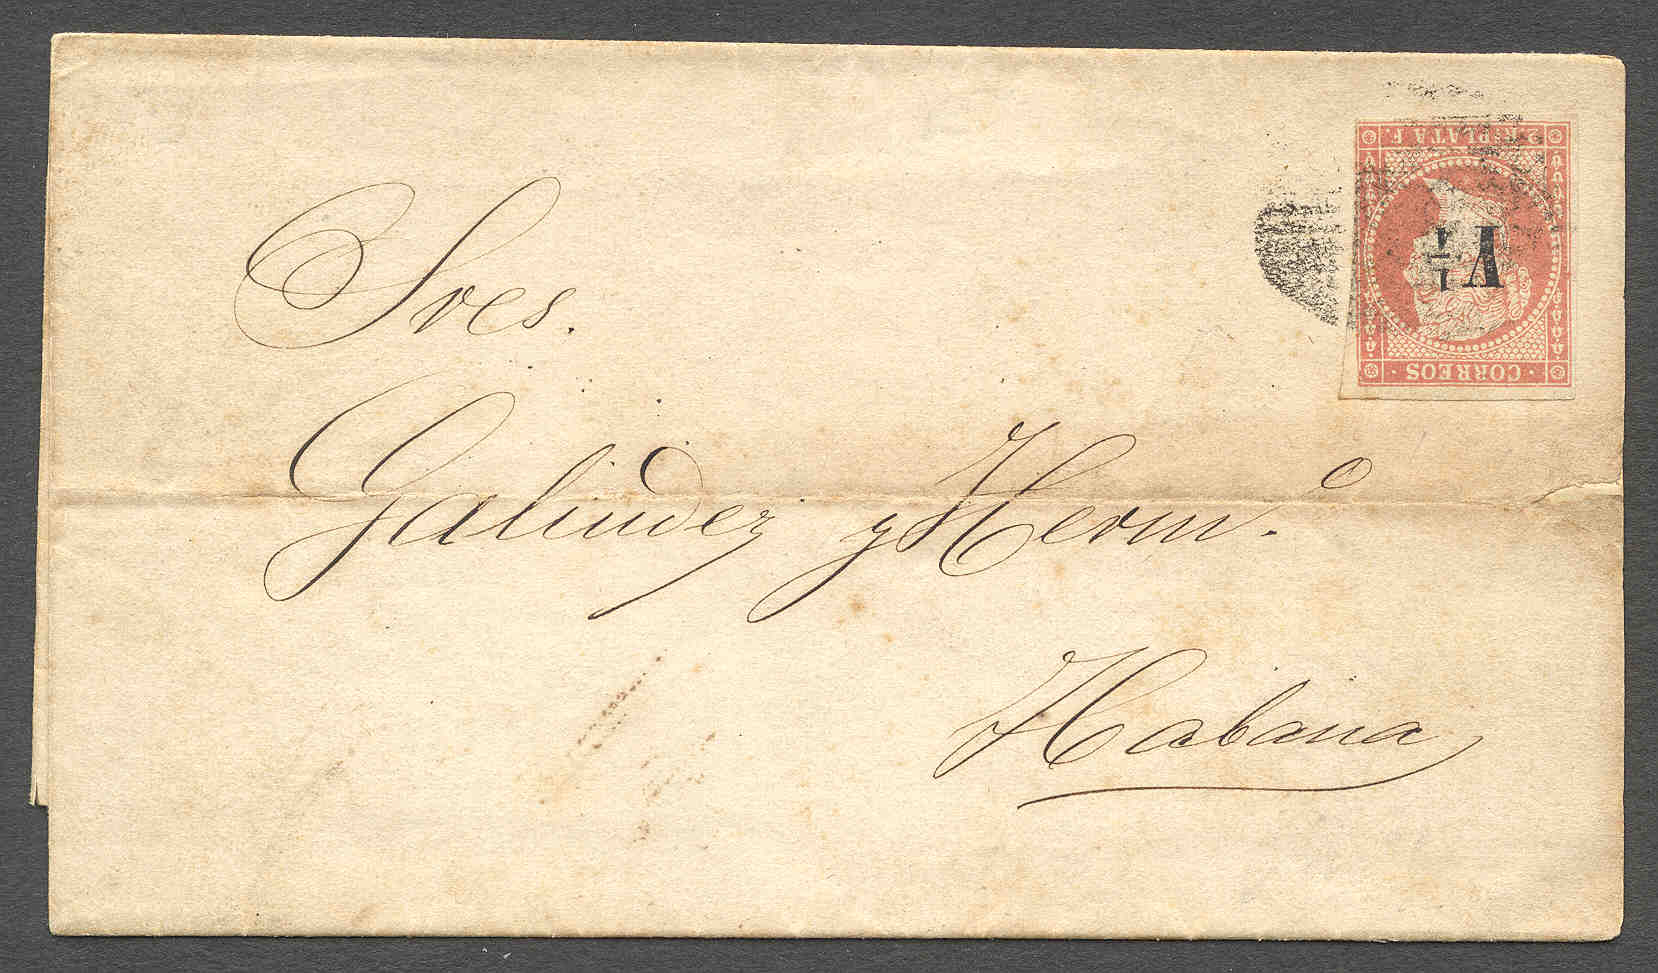 Sres.
Galindez y Herm.º
Habana
CORREOS
Y ¼
R. PLATA F.